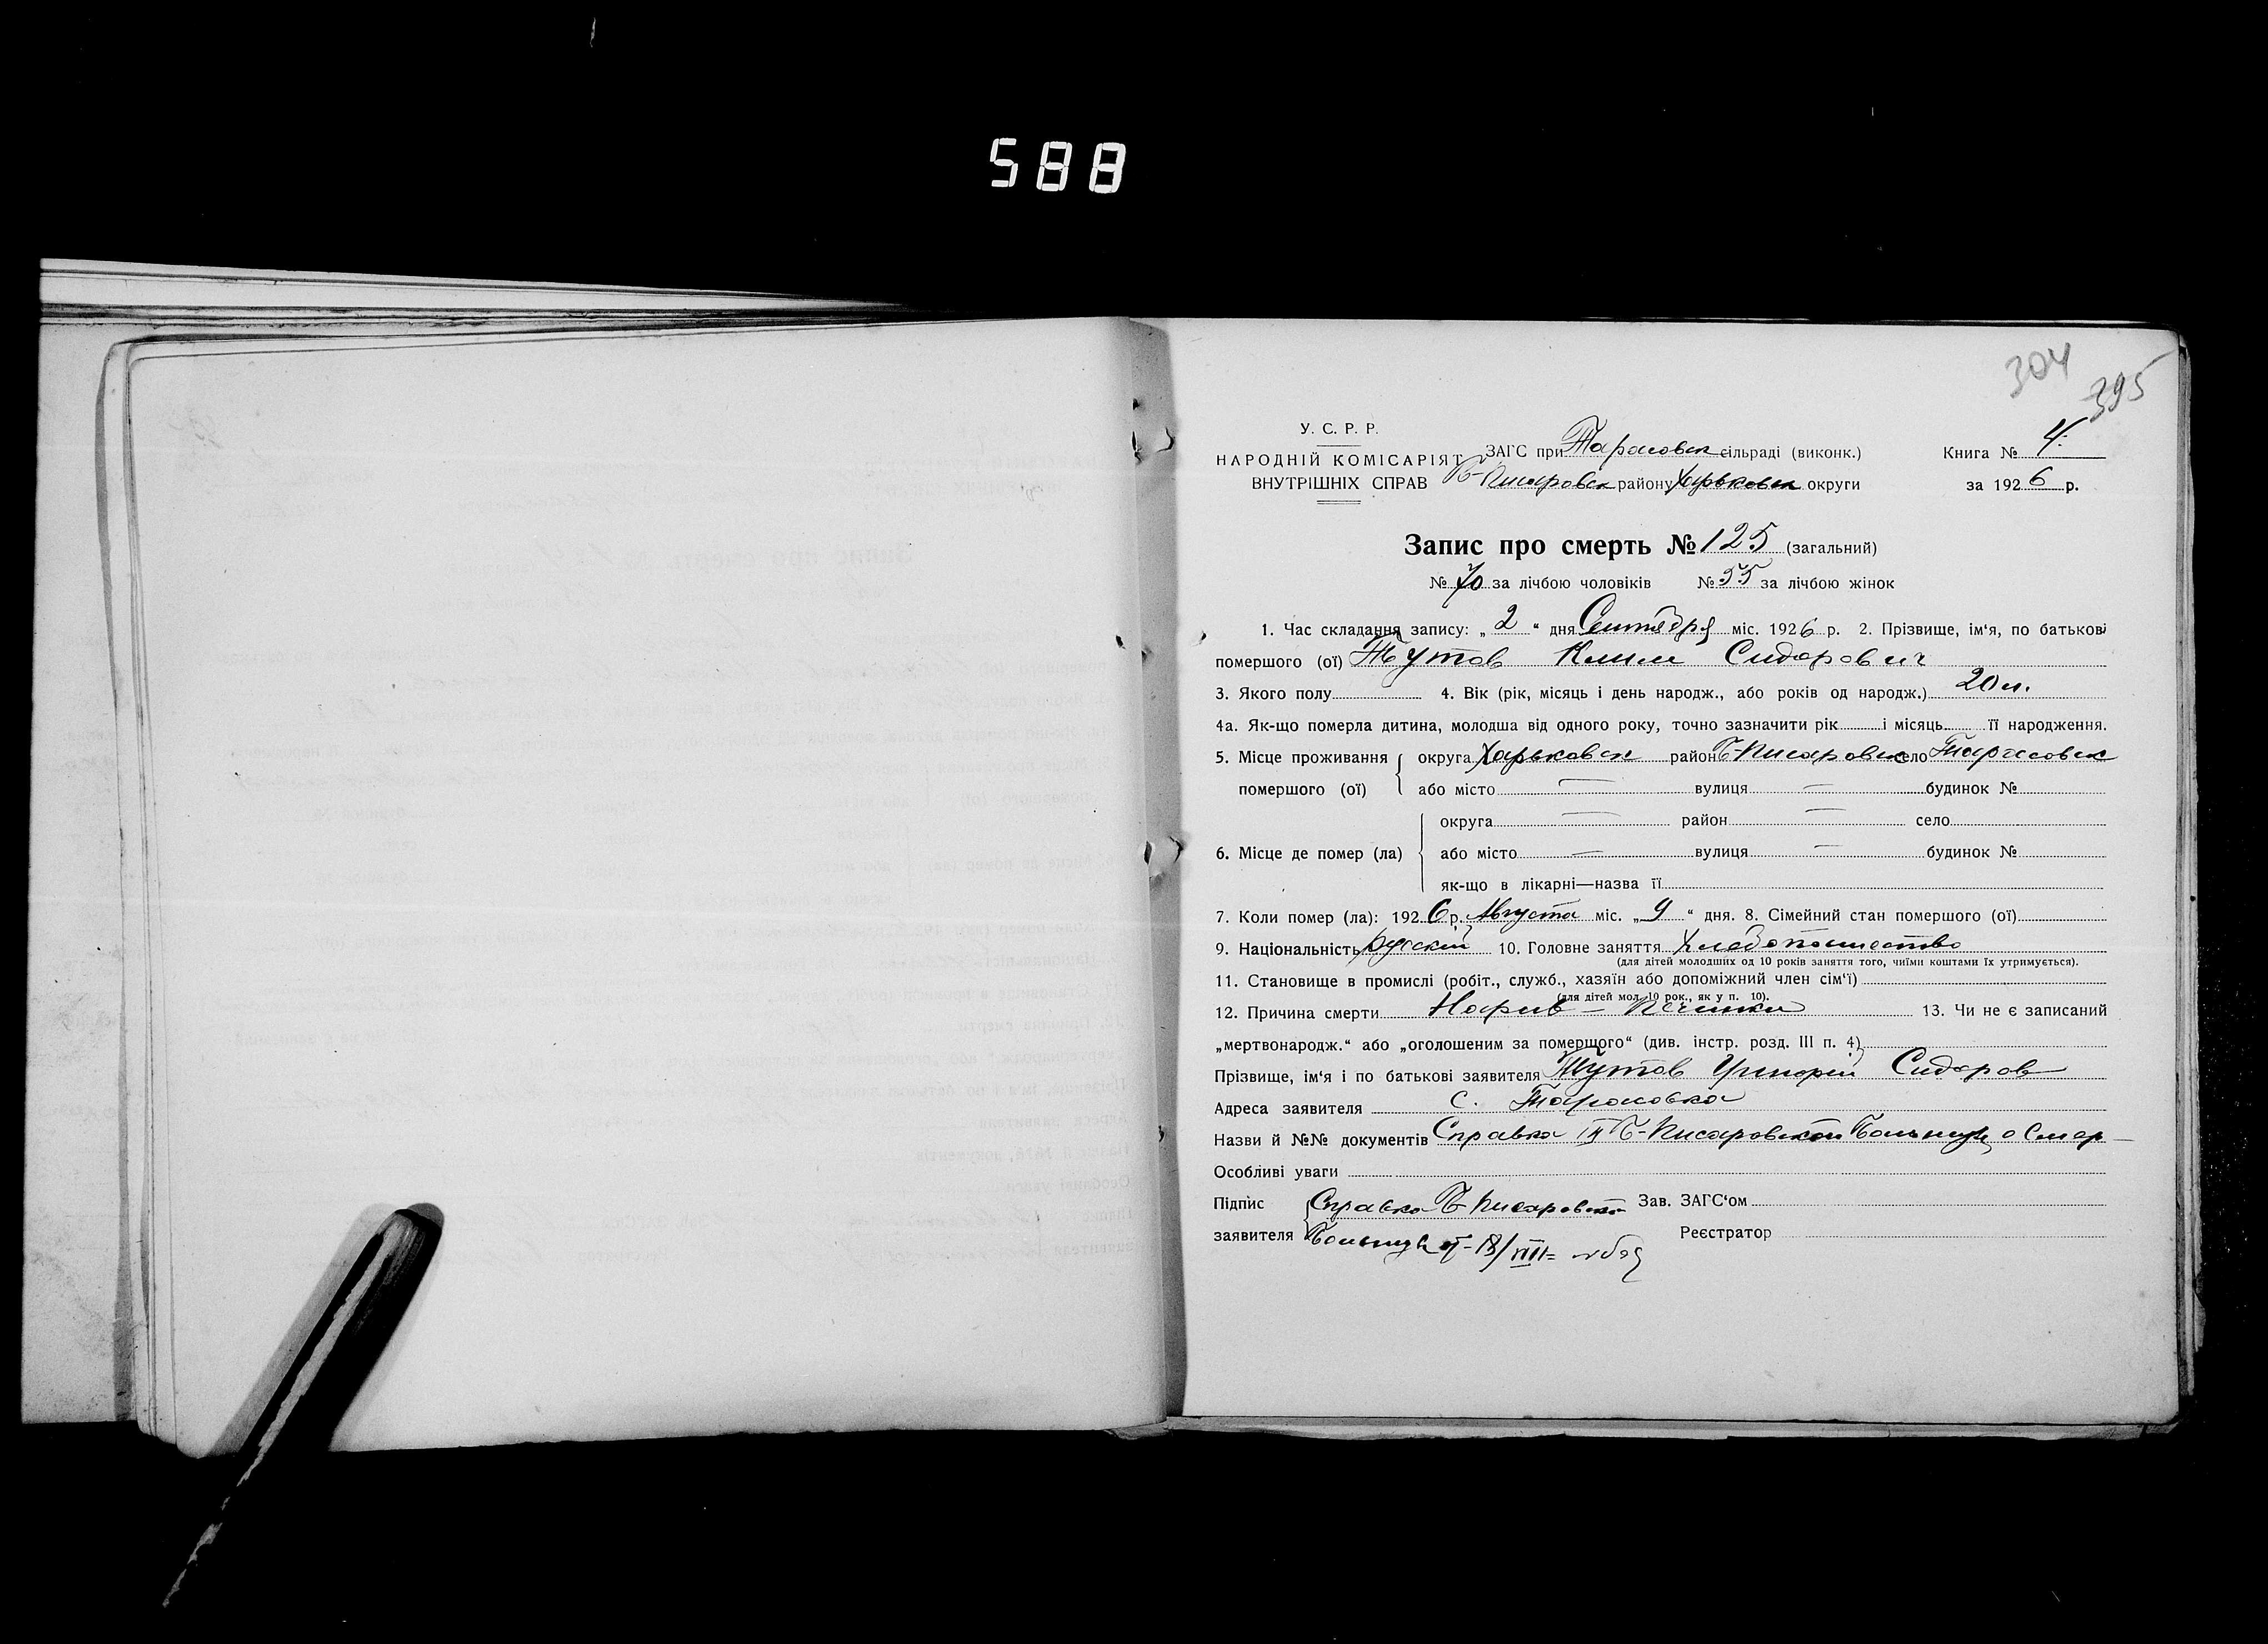 588
304
395
У. С. Р. Р.
НАРОДНІЙ КОМІСАРІЯТ
ВНУТРІШНІХ СПРАВ
ЗАГС при Тарасовск сільраді (виконк.)
Б-Писаровск району Харьковск округи
Книга № 4
за 1926 р.
Запис про смерть № 125 (загальний)
№ 70 за лічбою чоловіків № 55 за лічбою жінок
1. Час складання запису: „ 2 “ дня Сентября міс. 1926 р. 2. Прізвище, ім‘я, по батькові
помершого (ої) Тутов Клим Сидорович
3. Якого полу 4. Вік (рік, місяць і день народж., або років од народж.) 20 л.
4а. Як-що померла дитина, молодша від одного року, точно зазначити рік і місяць її народження.
5. Місце проживання помершого (ої) округа Харьковск район Б-Писаровск село Тарасовск
або місто — вулиця — будинок №
6. Місце де помер (ла) округа — район — село
або місто — вулиця — будинок №
як-що в лікарні—назва її
7. Коли помер (ла): 1926 р. Августа міс. „ 9 “ дня. 8. Сімейний стан помершого (ої)
9. Національність русский 10. Головне заняття Хлебопашество
(для дітей молодших од 10 років заняття того, чиїми коштами їх утримується).
11. Становище в промислі (робіт., служб., хазяїн або допоміжний член сім‘ї)
(для дітей мол. 10 рок., як у п. 10).
12. Причина смерти Нарив – Печинки 13. Чи не є записаний
„мертвонародж.“ або „оголошеним за помершого“ (див. інстр. розд. III п. 4)
Прізвище, ім‘я і по батькові заявителя Тутов Григорий Сидоров
Адреса заявителя с. Тарасовка
Назви й №№ документів Справка Б-Писаровской Больницы о Смер–
Особливі уваги
Підпис заявителя Справка Б-Писаровской Зав. ЗАГС‘ом
Больницы от 18/VIII Реєстратор